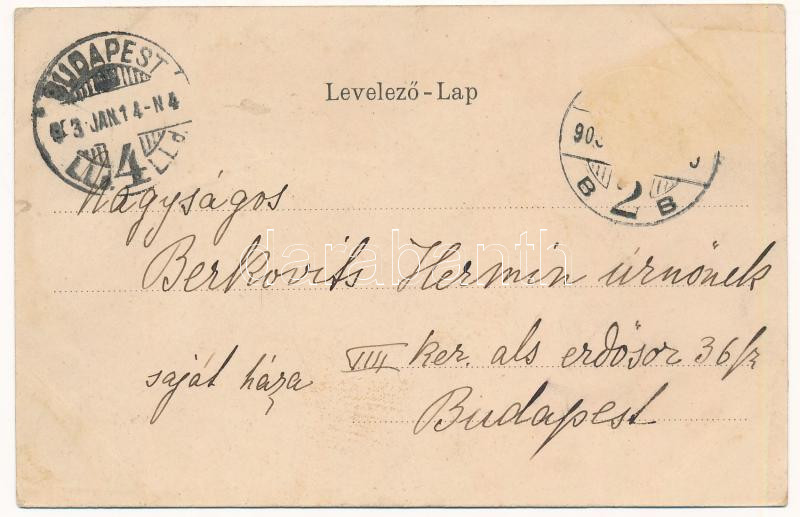 BUDAPEST
903 JAN. 14-N4
4
Levelező-Lap
903
B 2 B
Nagyságos
Berkovits Hermin úrnőnek
VIII ker. als erdősor 36 fz
saját háza
Budapest
darabanth